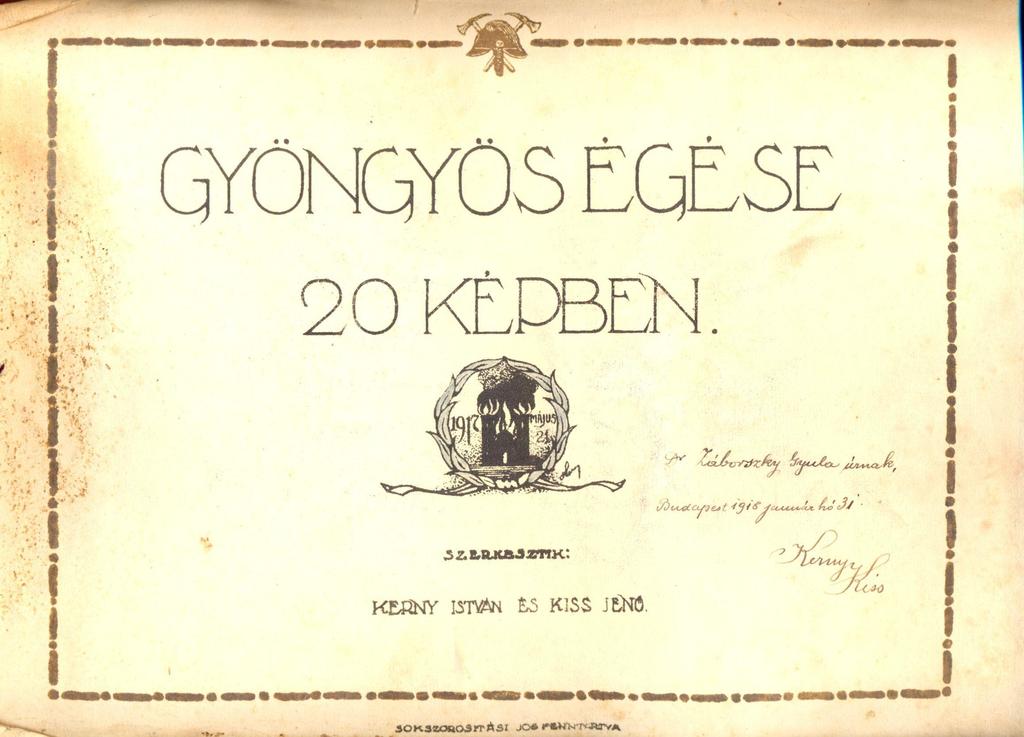 GYÖNGYÖS ÉGÉSE
20 KÉPBEN.
1917 MÁJUS 21
Dr Záborszky Gyula úrnak,
Budapest 1918 január hó 31.
Kerny Kiss
SZERKESZTIK:
KERNY ISTVÁN ÉS KISS JENŐ.
SOKSZOROSITÁSI JOG FENNTARTVA